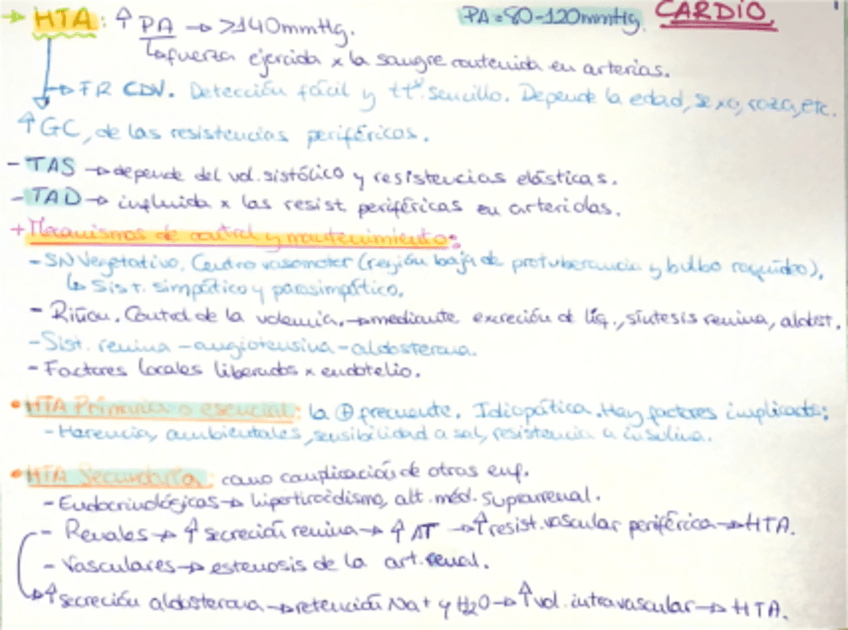 CARDIO.
→ HTA: ↑ PA → >140mmHg. PA = 80-120mmHg.
↳ fuerza ejercida x la sangre contenida en arterias.
→ FR CDV. Detección fácil y ttº sencillo. Depende la edad, sexo, raza, etc.
↑ GC, de las resistencias periféricas.
- TAS → depende del vol. sistólico y resistencias elásticas.
- TAD → influida x las resist. periféricas en arteriolas.
+ Mecanismos de control y mantenimiento:
- SN Vegetativo. Centro vasomotor (región baja de protuberancia y bulbo raquídeo).
↳ Sist. simpático y parasimpático.
- Riñon. Control de la volemia. → mediante excreción d líq., síntesis renina, aldost.
- Sist. renina - angiotensina - aldosterona.
- Factores locales liberados x endotelio.
• HTA Primaria o esencial: la ⊕ frecuente. Idiopática. Hay factores implicados:
- Herencia, ambientales, sensibilidad a sal, resistencia a insulina.
• HTA Secundaria: como complicación de otras enf.
- Endocrinológicas → hipertiroidismo, alt. méd. Suprarrenal.
- Renales → ↑ secreción renina → ↑ AT → ↑ resist. vascular periférica → HTA.
- Vasculares → estenosis de la art. renal.
→ ↑ secreción aldosterona → retención Na+ y H2O → ↑ vol. intravascular → HTA.